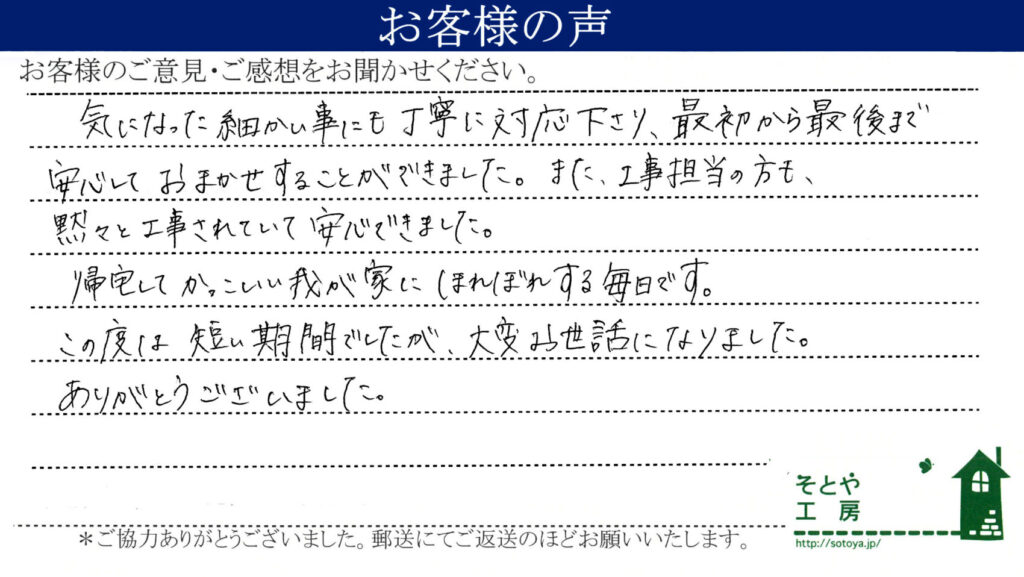 お客様の声
お客様のご意見・ご感想をお聞かせください。
気になった細かい事にも丁寧に対応下さり、最初から最後まで
安心しておまかせすることができました。また、工事担当の方も、
黙々と工事されていて安心できました。
帰宅してかっこいい我が家にほれぼれする毎日です。
この度は短い期間でしたが、大変お世話になりました。
ありがとうございました。
そとや
工房
http://sotoya.jp/
＊ご協力ありがとうございました。郵送にてご返送のほどお願いいたします。